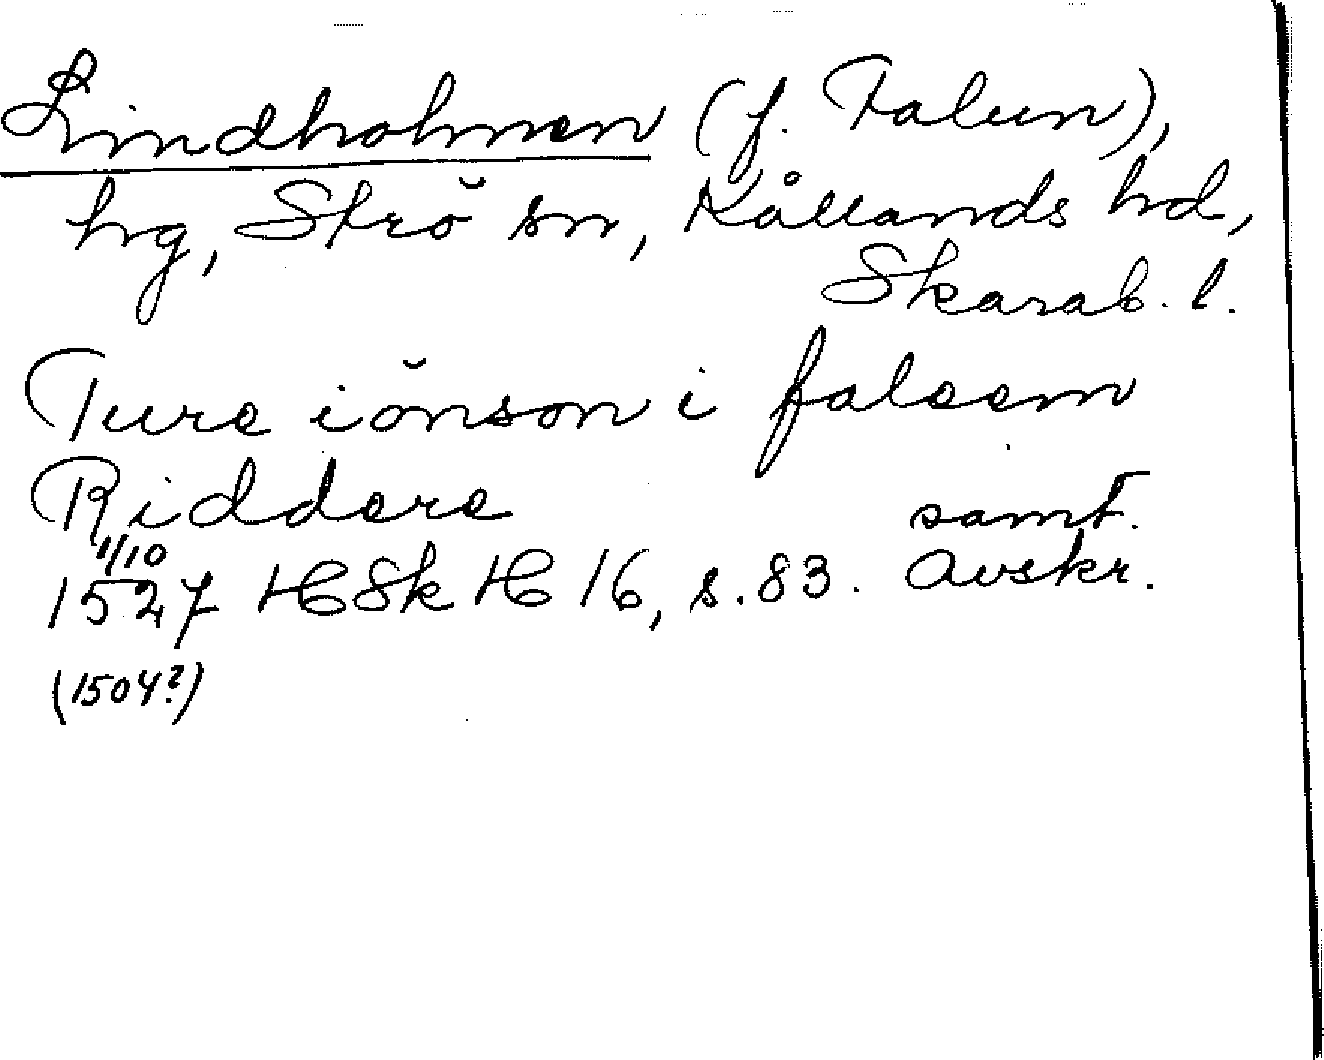 Lindholmen (f. Falun),
hg, Strö sn, Kållands hd,
Skarab. l.
Ture iönson i faleem
Riddere
samt.
1/10
1527 HSk H 16, s. 83. avskr.
(1504?)